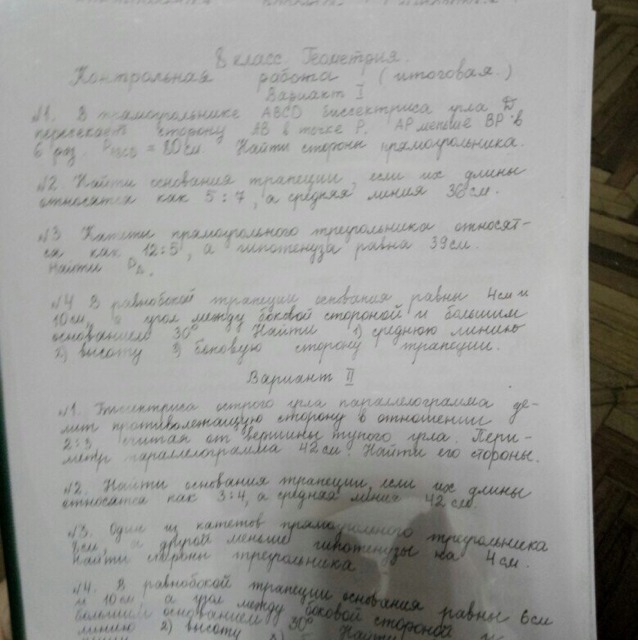 8 класс Геометрия.
Контрольная работа (итоговая.)
Вариант I
№1. В прямоугольнике ABCD биссектриса угла D
пересекает сторону AB в точке P. AP меньше BP в
6 раз. P ABCD = 80 см Найти стороны прямоугольника.
№2. Найти основания трапеции если их длины
относятся как 5:7, а средняя линия 38 см.
№3 Катеты прямоугольного треугольника относят-
ся как 12:5, а гипотенуза равна 39 см.
Найти P Δ.
№4 В равнобокой трапеции основания равны 4см и
10см, а угол между боковой стороной и большим
основанием 30° Найти 1) среднюю линию
2) высоту 3) боковую сторону трапеции.
Вариант II
№1. Биссектриса острого угла параллелограмма де-
лит противолежащую сторону в отношении
2:3 считая от вершины тупого угла. Пери-
метр параллелограмма 42см Найти его стороны.
№2. Найти основания трапеции если их длины
относятся как 3:4, а средняя линия 42 см.
№3. Один из катетов прямоугольного треугольника
8см, а другой меньше гипотенузы на 4 см.
Найти стороны треугольника
№4. В равнобокой трапеции основания равны 6см
и 10см а угол между боковой стороной и
большим основанием 30° Найти
линию 2) высоту